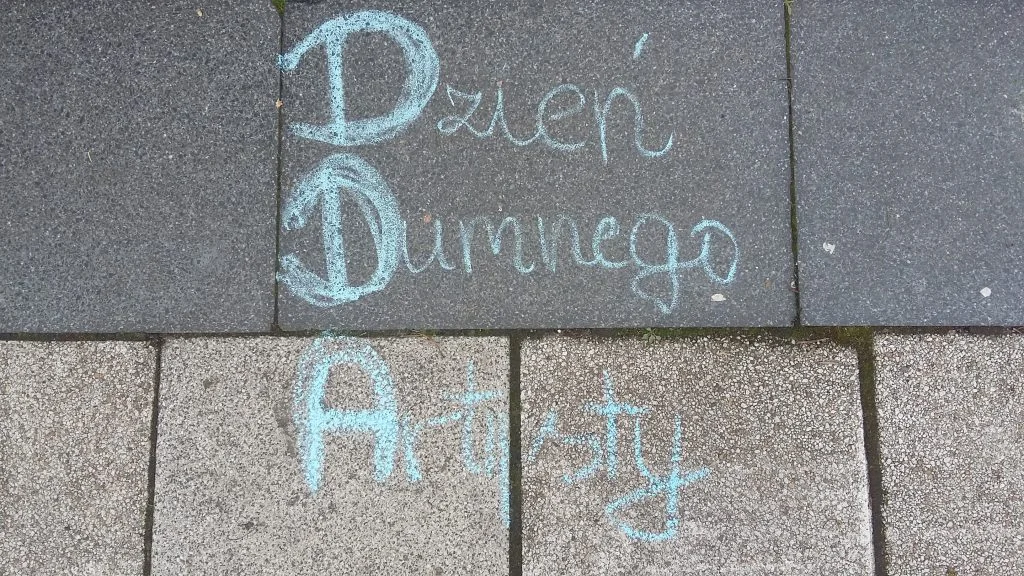 Dzień
Dumnego
Artysty